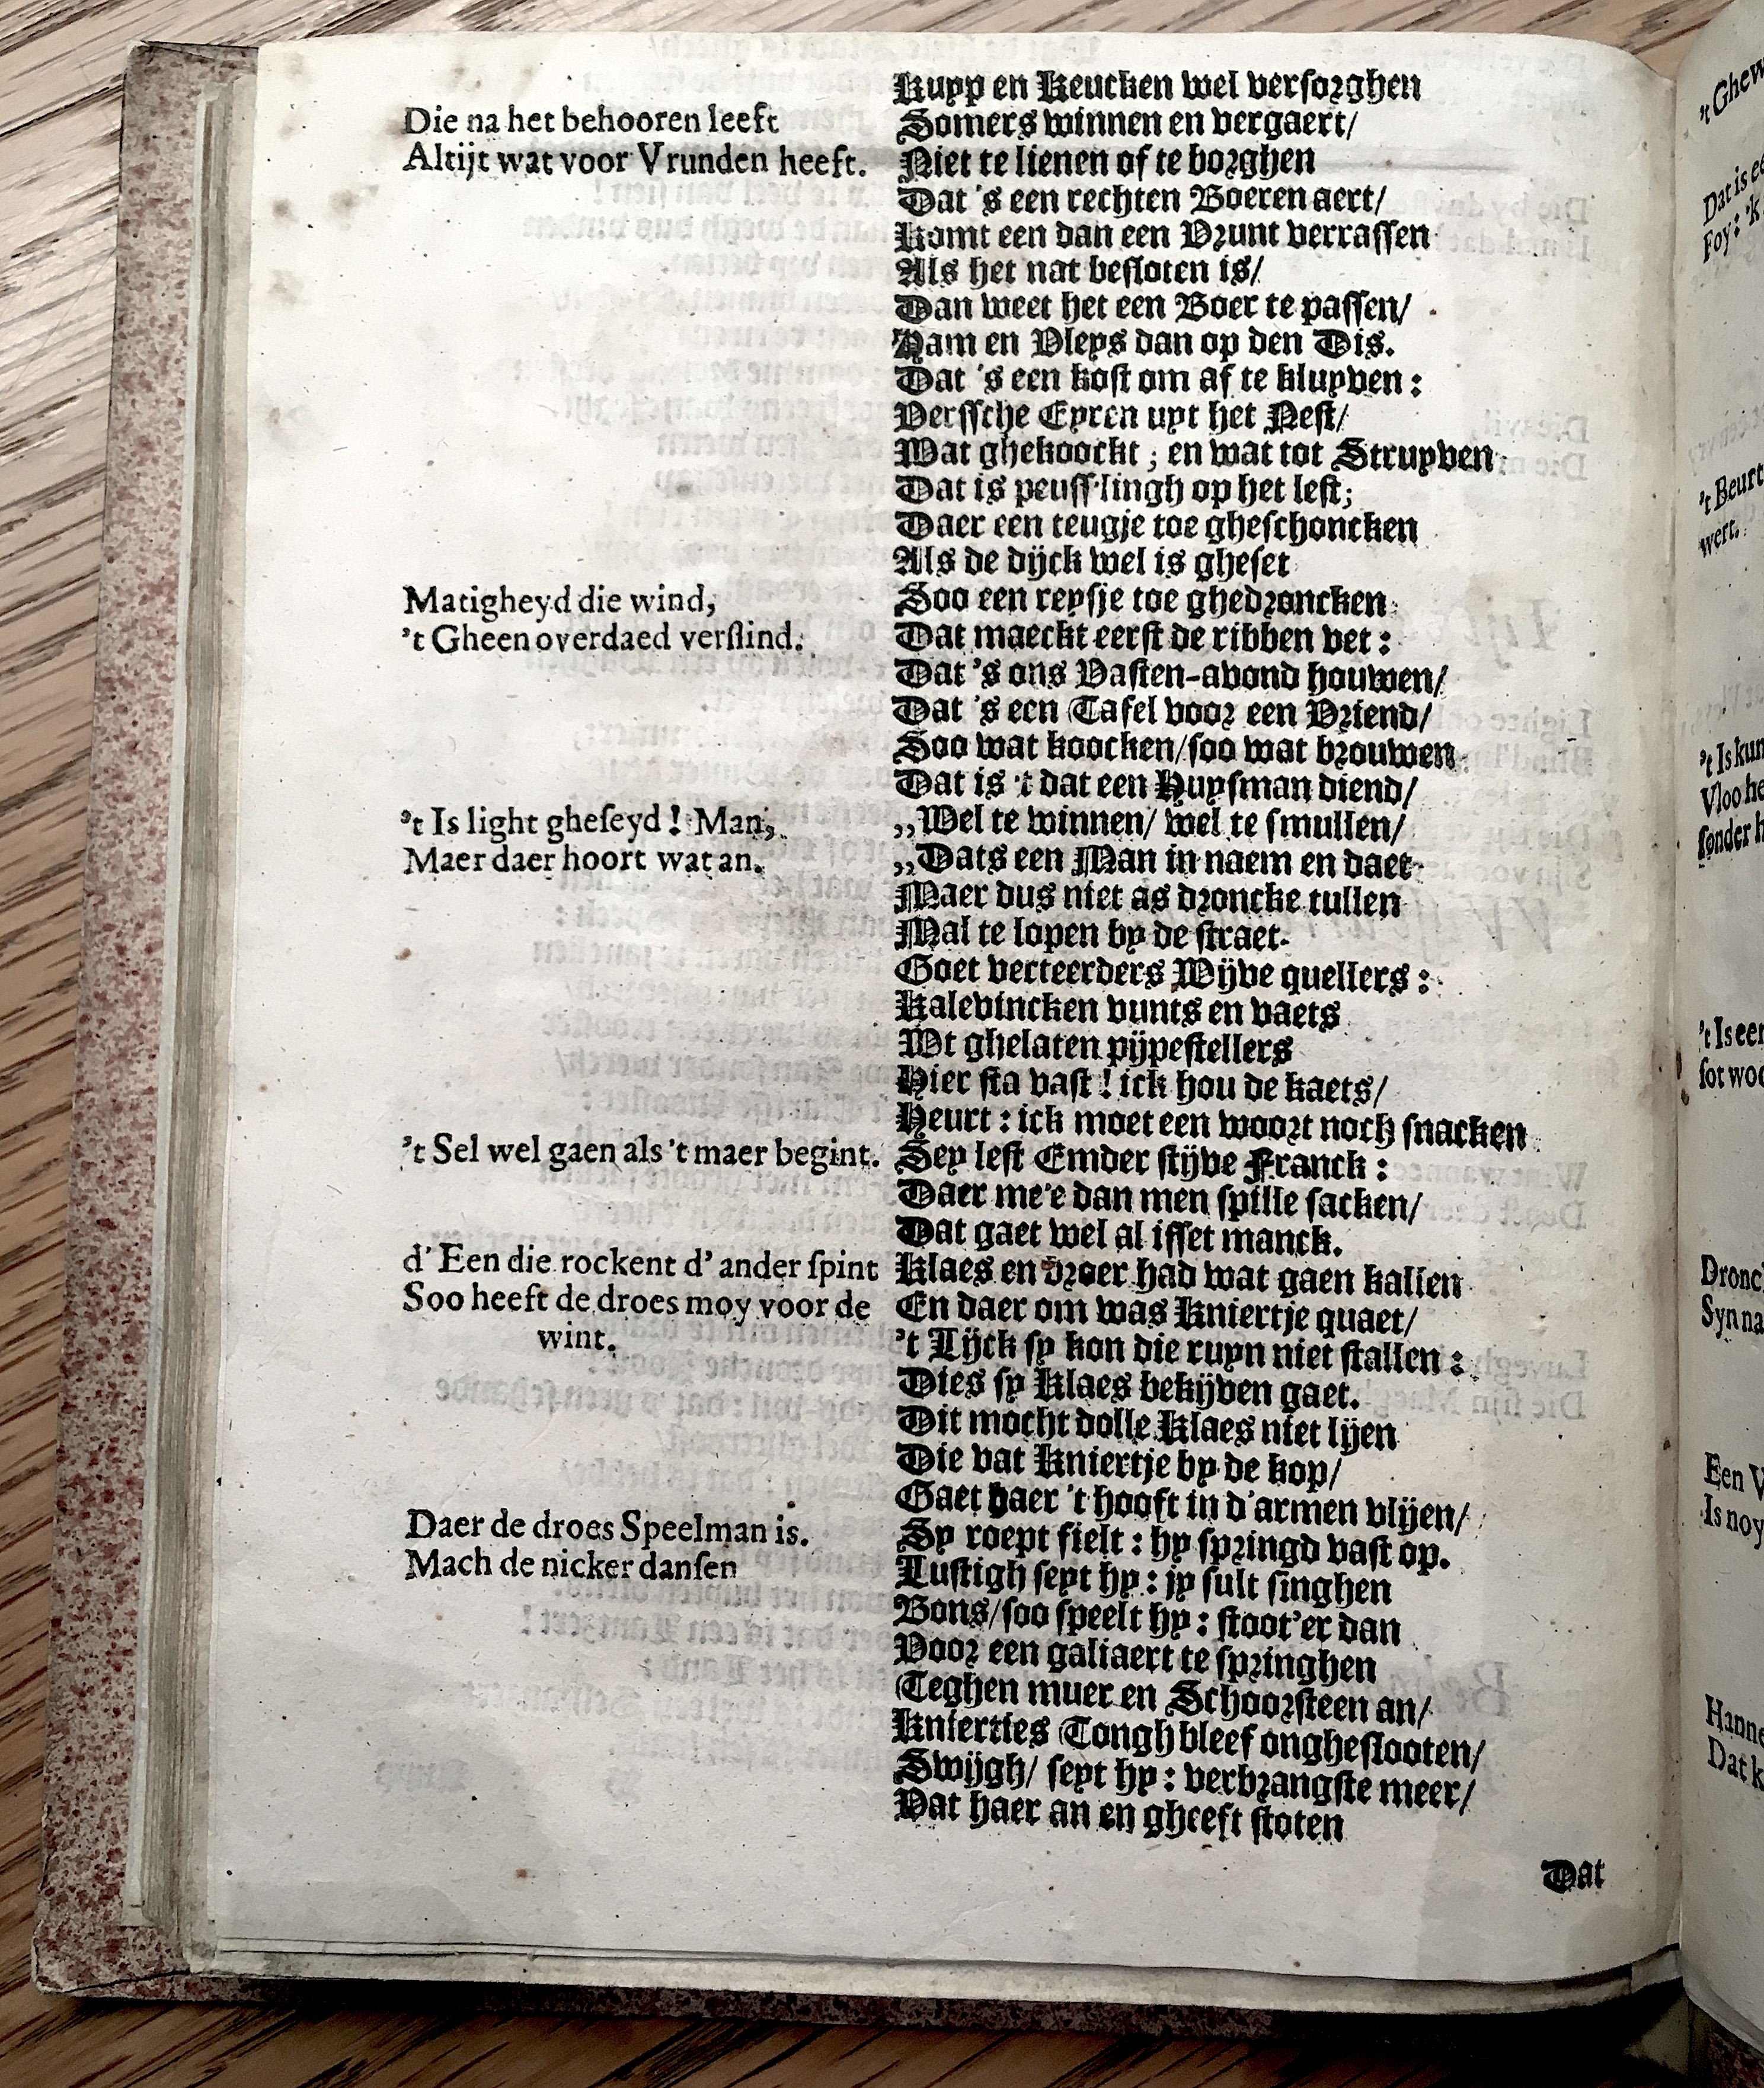 Kuyp en Keucken wel versorghen
Die na het behooren leeft
Somers winnen en vergaert/
Altijt wat voor Vrunden heeft.
Niet te lienen of te borghen
Dat 's een rechten Boeren aert/
Komt een dan een Vrunt verrassen
Als het nat besloten is/
Dan weet het een Boer te passen/
Ham en Vleys dan op den Dis.
Dat 's een kost om af te kluyven:
Verssche Eyren uyt het Nest/
Wat ghekoockt; en wat tot Struyven
Dat is peuss'lingh op het lest;
Daer een teugje toe gheschoncken
Als de dijck wel is gheset
Matigheyd die wind,
Soo een reysje toe ghedroncken
't Gheen overdaed verslind.
Dat maeckt eerst de ribben vet:
Dat 's ons Vasten-avond houwen/
Dat 's een Tafel voor een Vriend/
Soo wat koocken/soo wat brouwen
Dat is 't dat een Huysman diend/
't Is light gheseyd! Man,
,,Wel te winnen/ wel te smullen/
Maer daer hoort wat an.
,,Dats een Man in naem en daet
Maer dus niet as droncke tullen
Mal te lopen by de straet.
Goet verteerders Wijve quellers:
Kalevincken vunts en vaets
Wt ghelaten pijpestellers
Hier sta vast! ick hou de kaets/
Heurt: ick moet een woort noch snacken
't Sel wel gaen als 't maer begint.
Sey lest Emder stijve Franck:
Daer me'e dan men spille sacken/
Dat gaet wel al isset manck.
d' Een die rockent d' ander spint
Klaes en droer had wat gaen kallen
Soo heeft de droes moy voor de
En daer om was Kniertje quaet/
wint.
't Lijck sy kon die ruyn niet stallen:
Dies sy Klaes bekijven gaet.
Dit mocht dolle Klaes niet lijen
Die vat Kniertje by de kop/
Gaet haer 't hooft in d'armen vlijen/
Daer de droes Speelman is.
Sy roept fielt: hy springd vast op.
Mach de nicker dansen
Lustigh seyt hy: jy sult singhen
Bons/soo speelt hy: stoot'er dan
Voor een galiaert te springhen
Teghen muer en Schoorsteen an/
Knierties Tongh bleef onghesslooten/
Swijgh/ seyt hy: verbrangste meer/
Vat haer an en gheeft stoten
Dat